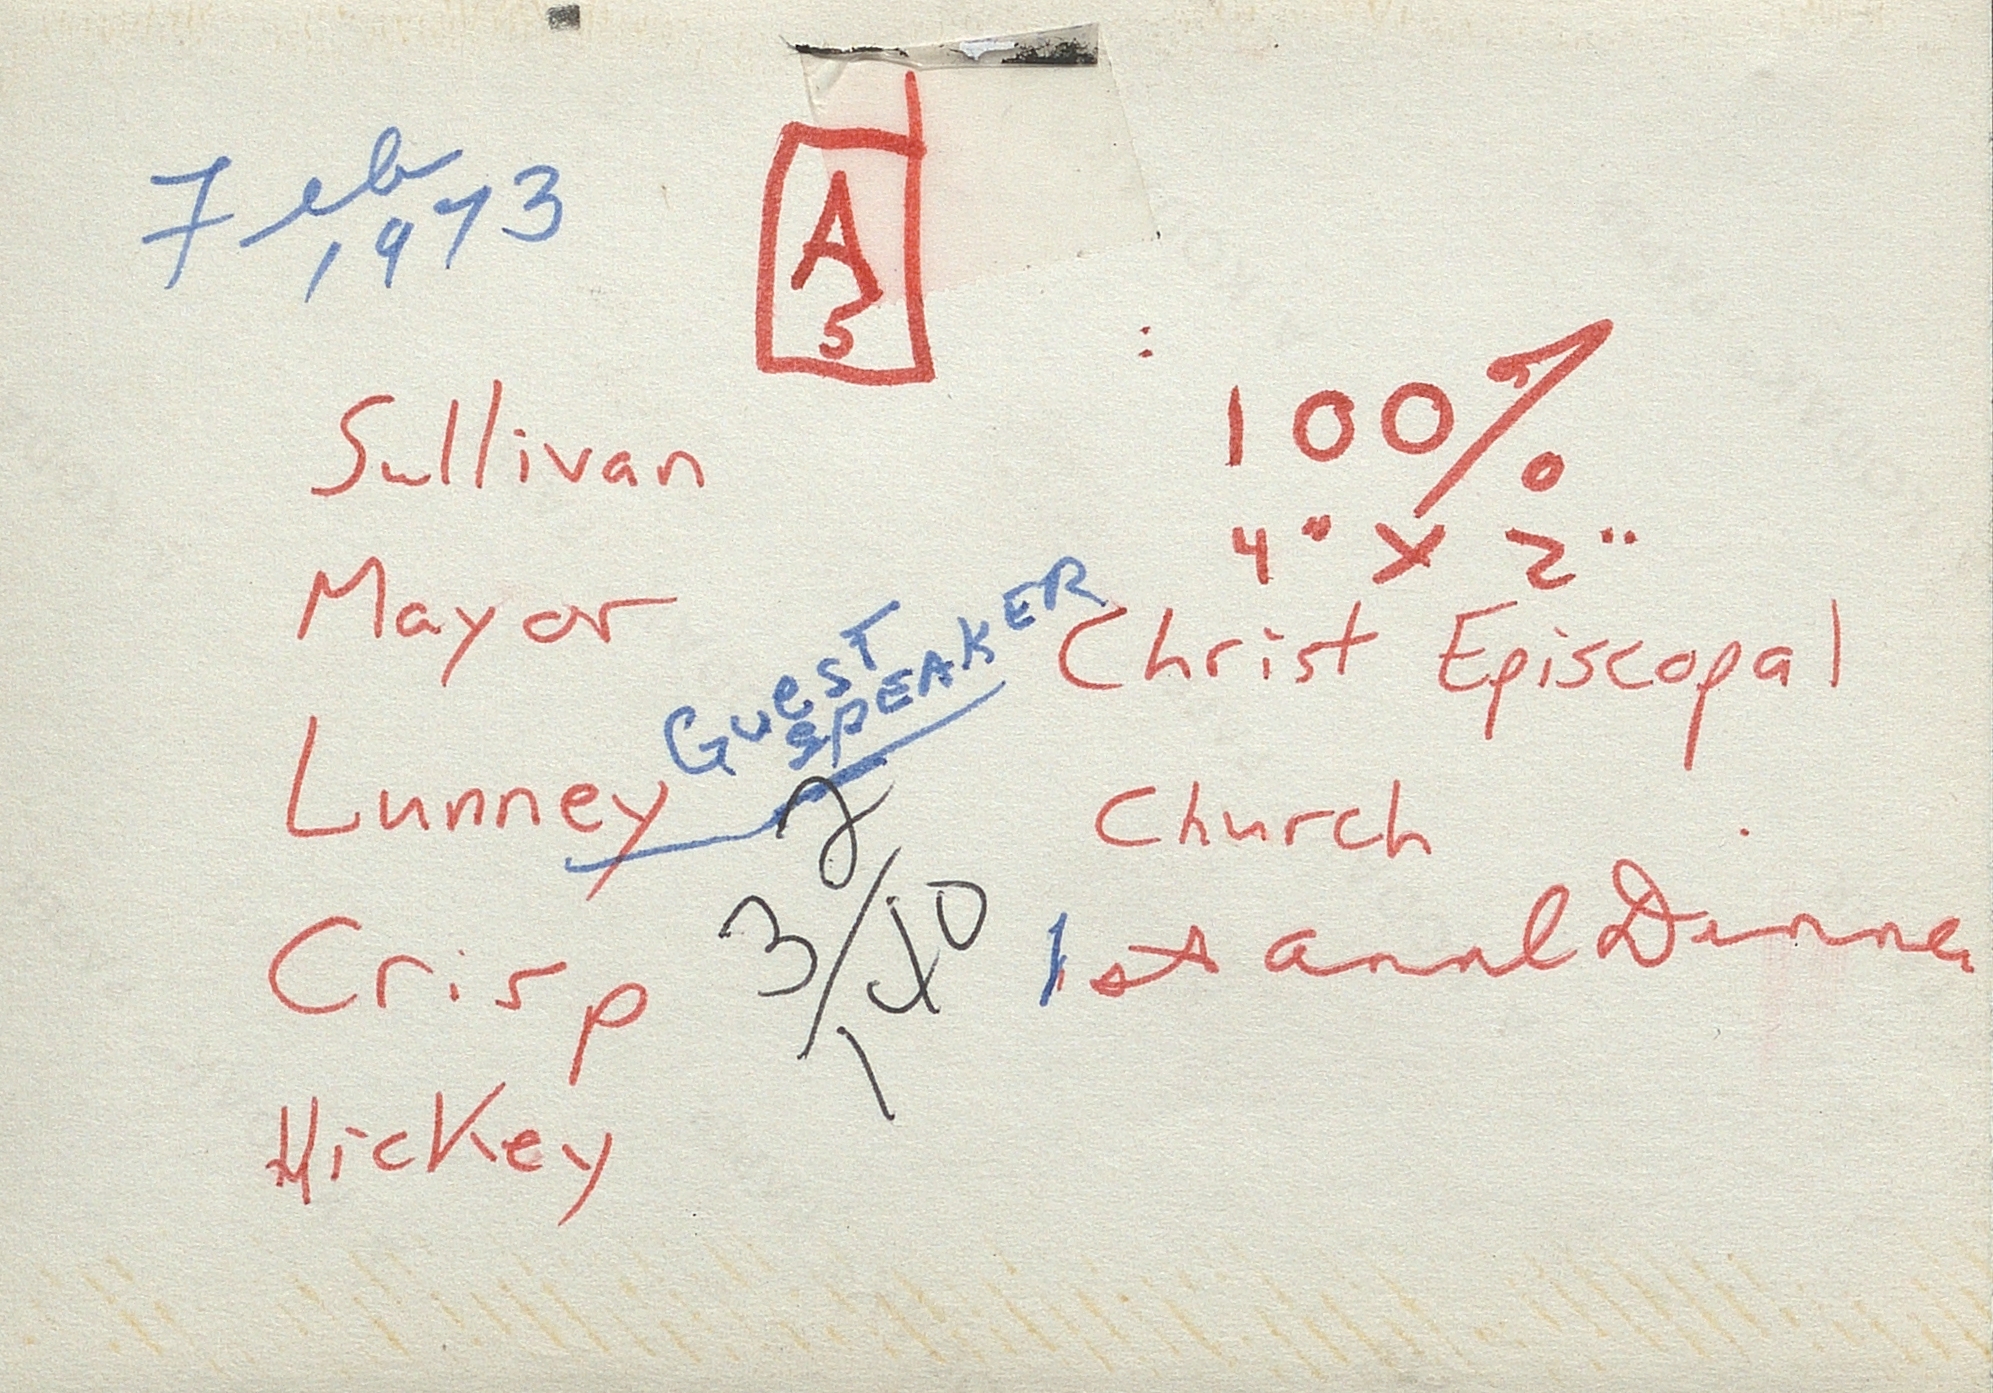 Feb
1973
A
5
100%
4" x 2"
Sullivan
Mayor
Lunney
Guest
SPEAKER
Crisp
Hickey
2
3/10
1
Christ Episcopal
Church
1st annl Dinner